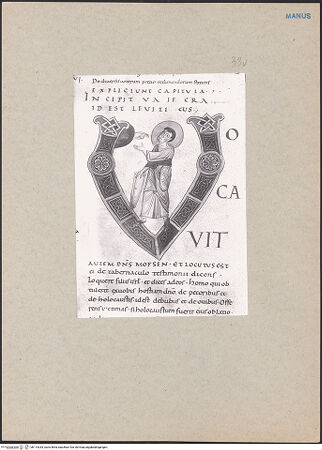 MANUS
33v
VI. De diversitate
EXPLICIUNT CAPITULA.
INCIPIT VAIECRA
ID EST LEVITICUS.
VOCAVIT
AUTEM DNS MOYSEN. ET LOCUTUS EST
ei de tabernaculo testimonii dicens.
Loquere filiis isrl. et dices ad eos. Homo qui ob
tulerit ex vobis hostiam dno. de pecoribus id
de holocaustis. idest de bubus et de ovibus. Offe
rens victimas. si holocaustum fuerit eius oblatio